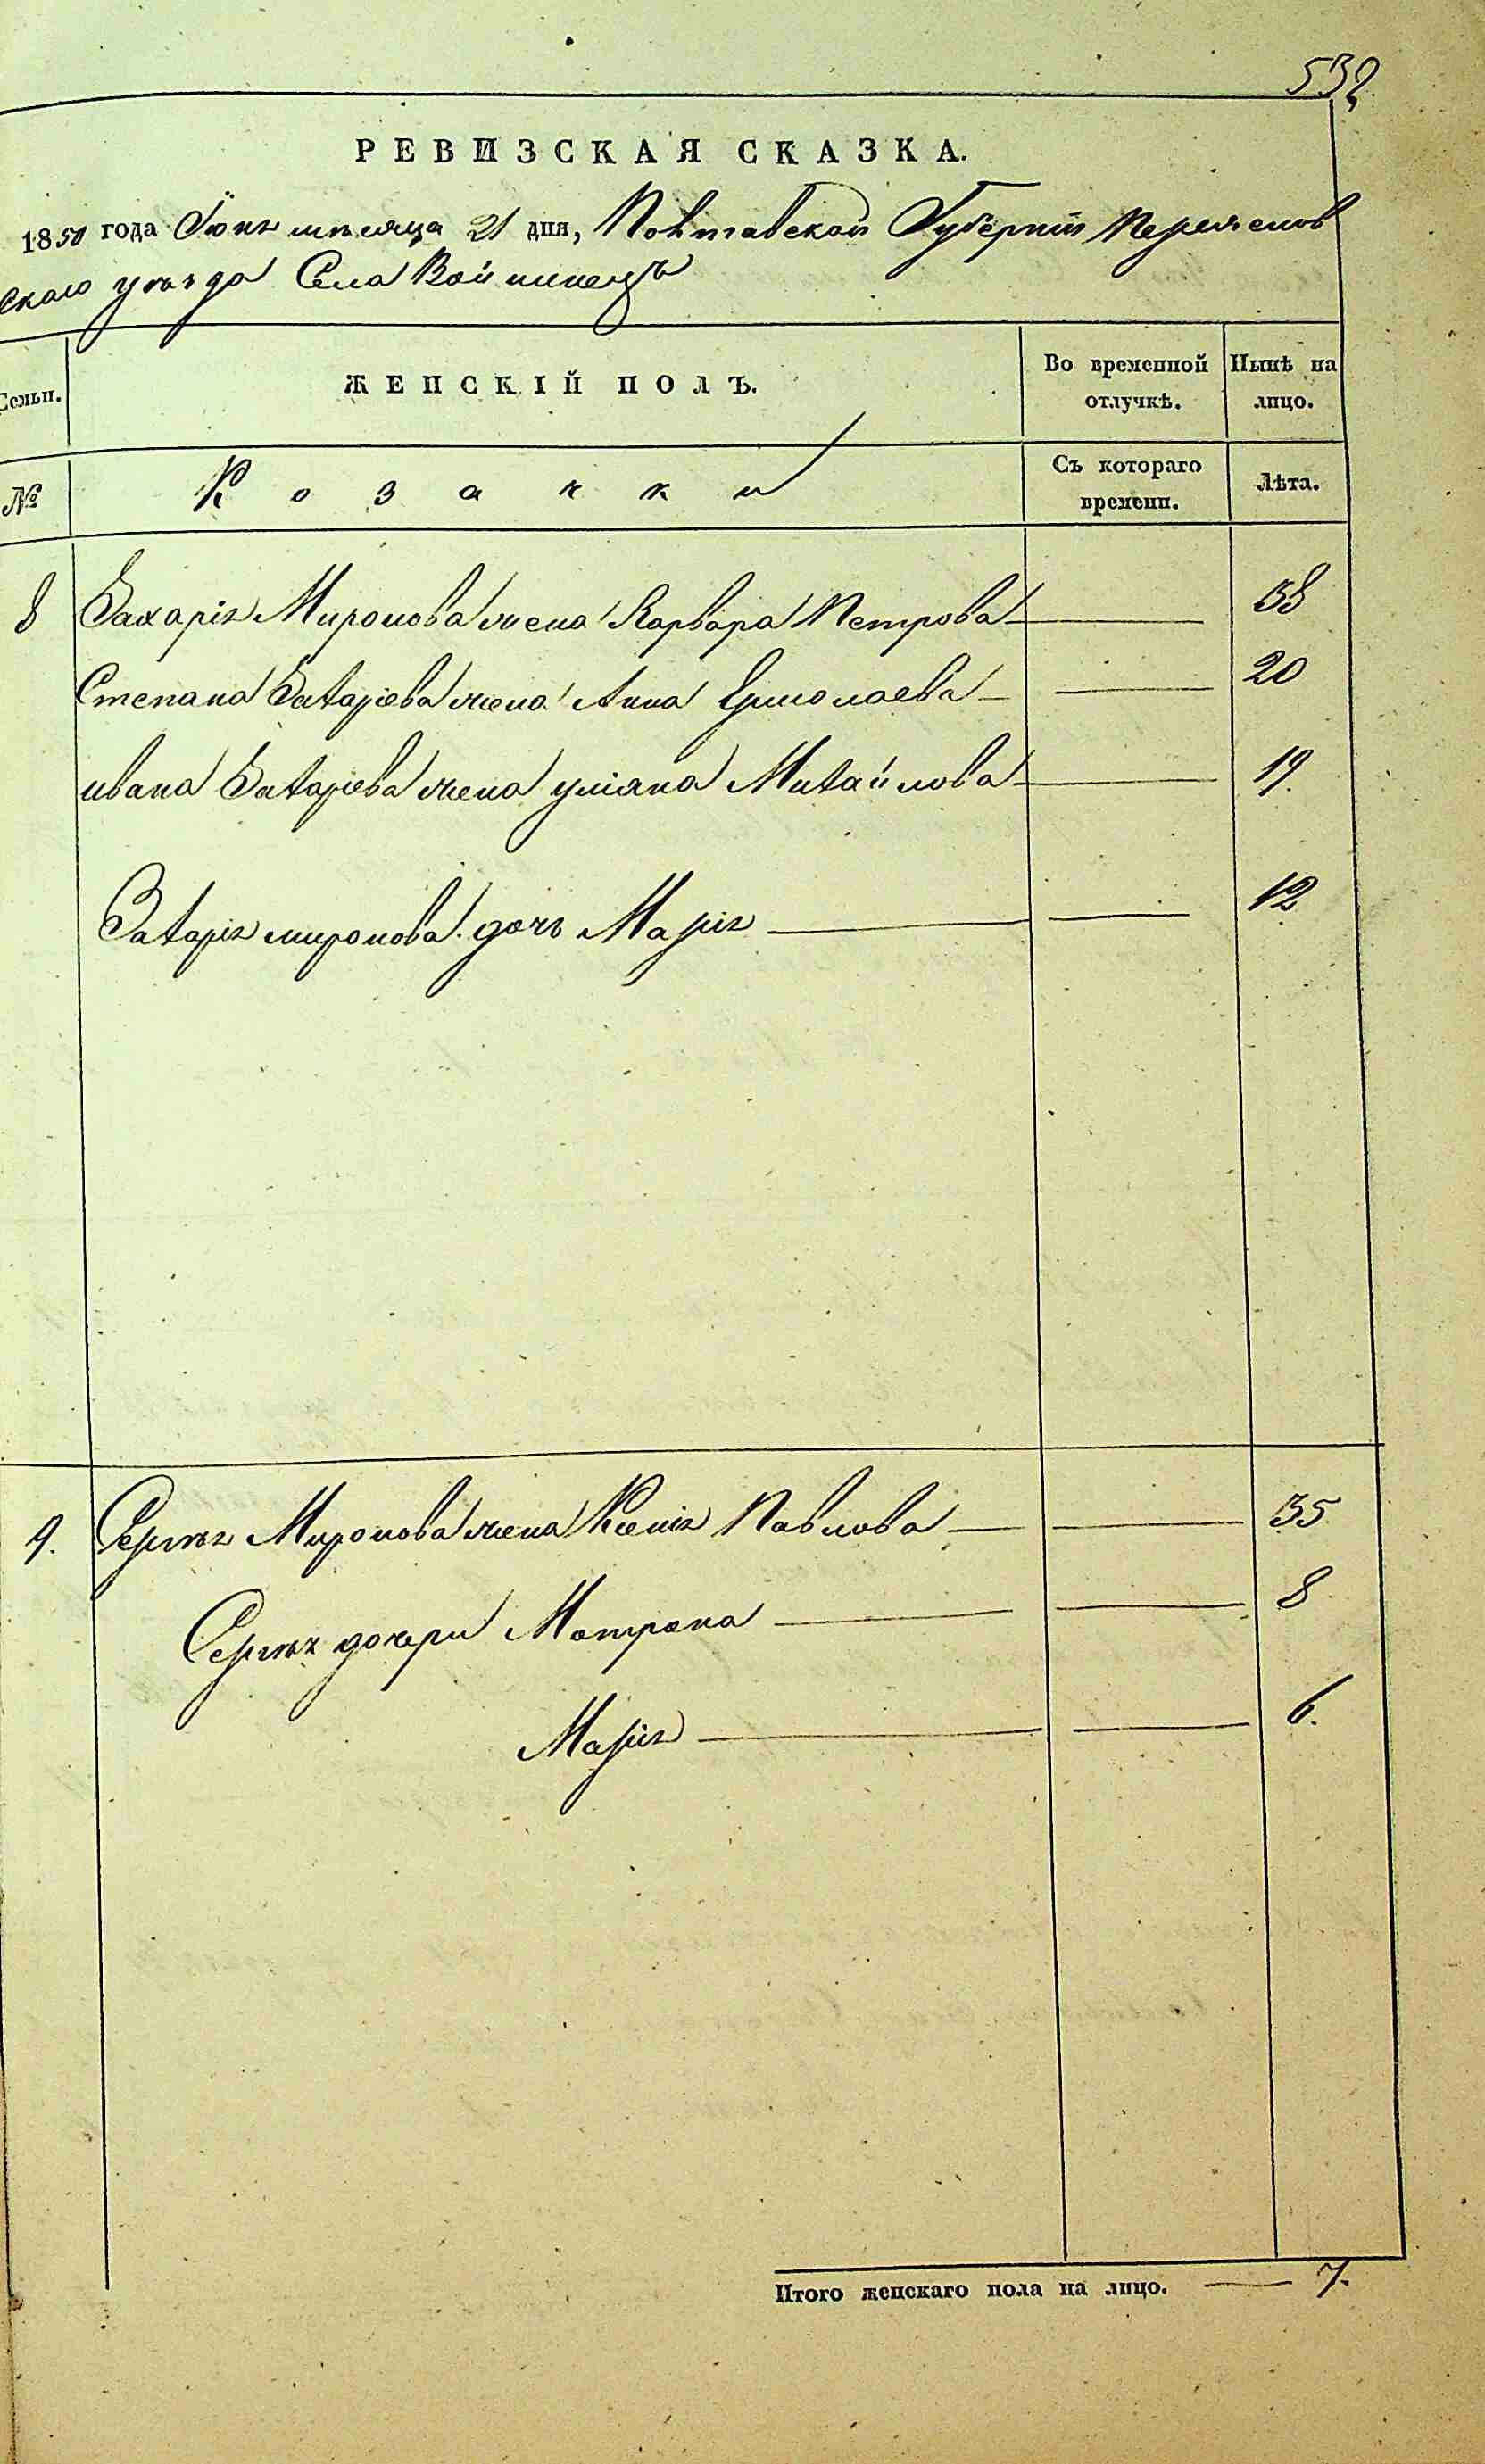 532
РЕВИЗСКАЯ СКАЗКА.
1850 года Іюня мѣсяца 21 дня, Полтавской Губерніи Переяслов
скаго уѣзда Села Войнинецъ
Семьи. ЖЕНСКІЙ ПОЛЪ. Во временной отлучкѣ. Нынѣ на лицо.
№ Козачки Съ котораго времени. Лѣта.
8 Захарія Миронова жена Варвара Петрова 38
Степана Захаріева жена Анна Ермолаева 20
ивана Захаріева жена уліяна Михайлова 19.
Захарія миронова дочь Марія 12
9. Сергѣя Миронова жена Ксенія Павлова 35
Сергѣя дочери Матрона 8
Марія 6.
Итого женскаго пола на лицо. 7.